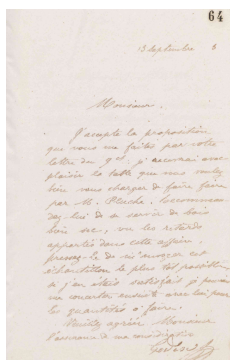 64
13 septembre 6
Monsieur.
J'accepte la proposition
que vous me faites par votre
lettre du 9 ct: j'accueil avec
plaisir la table que vous voulez
bien vous charger de faire faire
par M. Pluche. Recomman-
dez-lui de se servir de bois
bien sec, vu les retards
apportés dans cette affaire,
pressez-le de m'envoyer cet
échantillon le plus tôt possible
si j'en étais satisfait je pourrais
me concerter ensuite avec lui pour
les quantités à faire.
Veuillez agréer Monsieur
l'assurance de ma considération